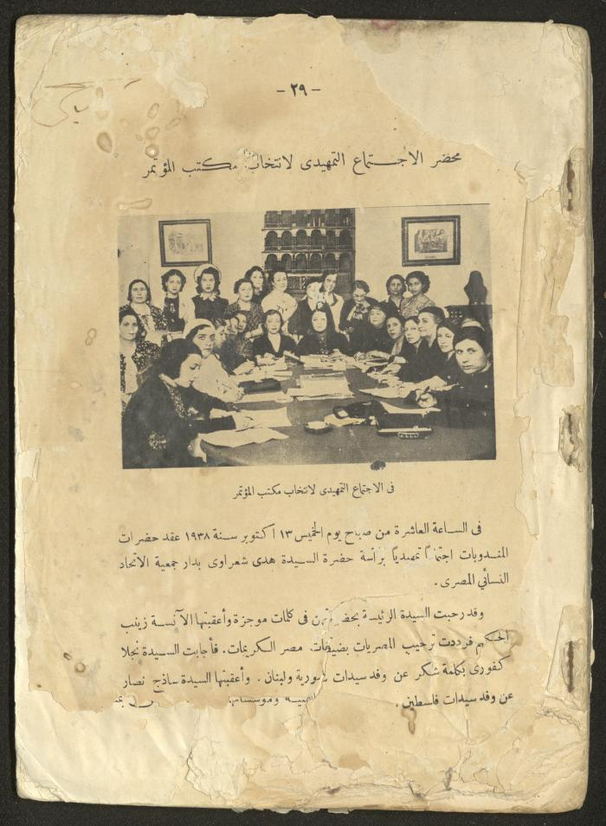 - ٢٩ -
محضر الاجتماع التمهيدى لانتخاب مكتب المؤتمر
فى الاجتماع التمهيدى لانتخاب مكتب المؤتمر
فى الساعة العاشرة من صباح يوم الخميس ١٣ اكتوبر سنة ١٩٣٨ عقد حضرات
المندوبات اجتماعاً تمهيدياً برآسة حضرة السيدة هدى شعراوى بدار جمعية الاتحاد
النسائي المصرى .
وقد رحبت السيدة الرئيسة فى كلمات موجزة وأعقبتها الآنسة زينب
فرددت ترحيب المصريات بضيفات مصر الكريمات . فأجابت السيدة نجلا
كفورى بكلمة شكر عن وفد سيدات سورية ولبنان . وأعقبتها السيدة ساذج نصار
عن وفد سيدات فلسطين .